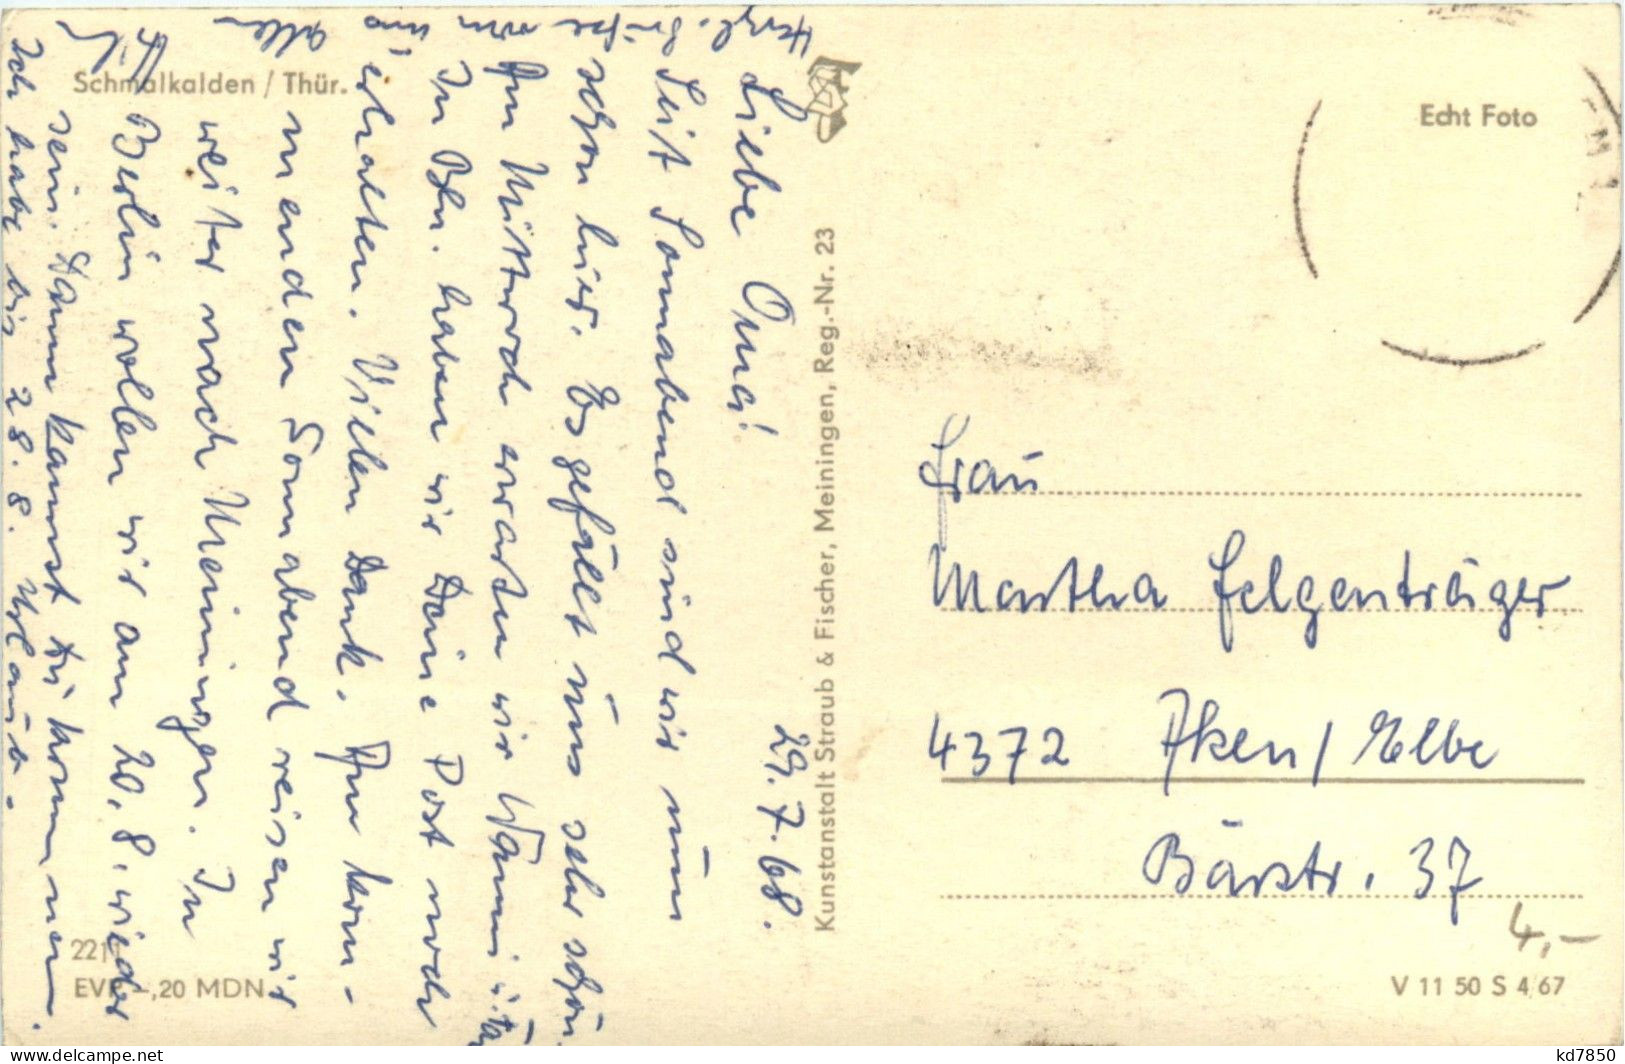 Schmalkalden / Thür.
Echt Foto
29.7.68.
Liebe Oma!
Seit Sonnabend sind wir nun
schon hier. Es gefällt uns sehr schön.
Am Mittwoch erwarten wir
In Bln. haben wir Deine Post noch
erhalten. Vielen Dank. Am kom-
menden Sonnabend reisen wir
weiter nach Meiningen. In
Berlin wollen wir am 20.8. wieder
sein. Dann kannst Du kommen.
Ich habe bis 28.8. Urlaub.
Herzl. Grüße von uns
allen
Kunstanstalt Straub & Fischer, Meiningen, Reg.-Nr. 23
Frau
Martha Felgenträger
4372 Aken / Elbe
Bärstr. 37
4,–
221
EVP –,20 MDN
V 11 50 S 4/67
kd7850
www.delcampe.net